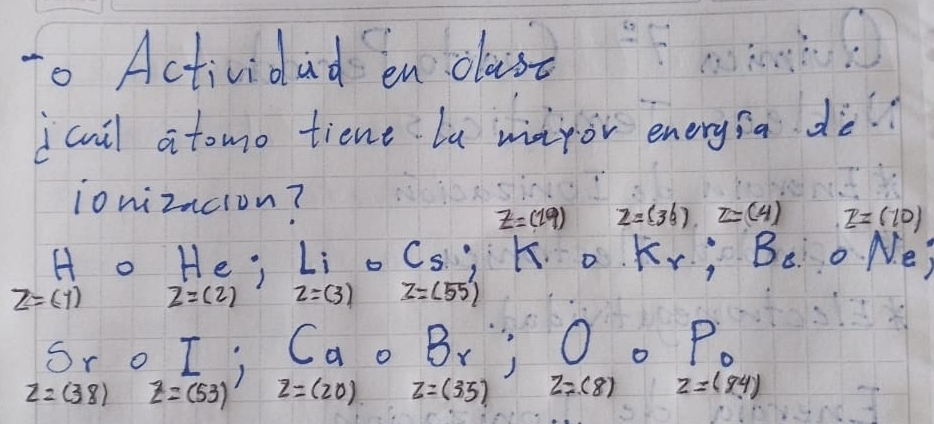 -o Actividad en clase
¿cuál átomo tiene la mayor energía de
ionizacion?
Z=(19) Z=(36) Z=(4) Z=(10)
H o He; Li o Cs; K o Kr; Be o Ne;
Z=(1) Z=(2) Z=(3) Z=(55)
Sr o I; Ca o Br; O o Po
Z=(38) Z=(53) Z=(20) Z=(35) Z=(8) Z=(84)